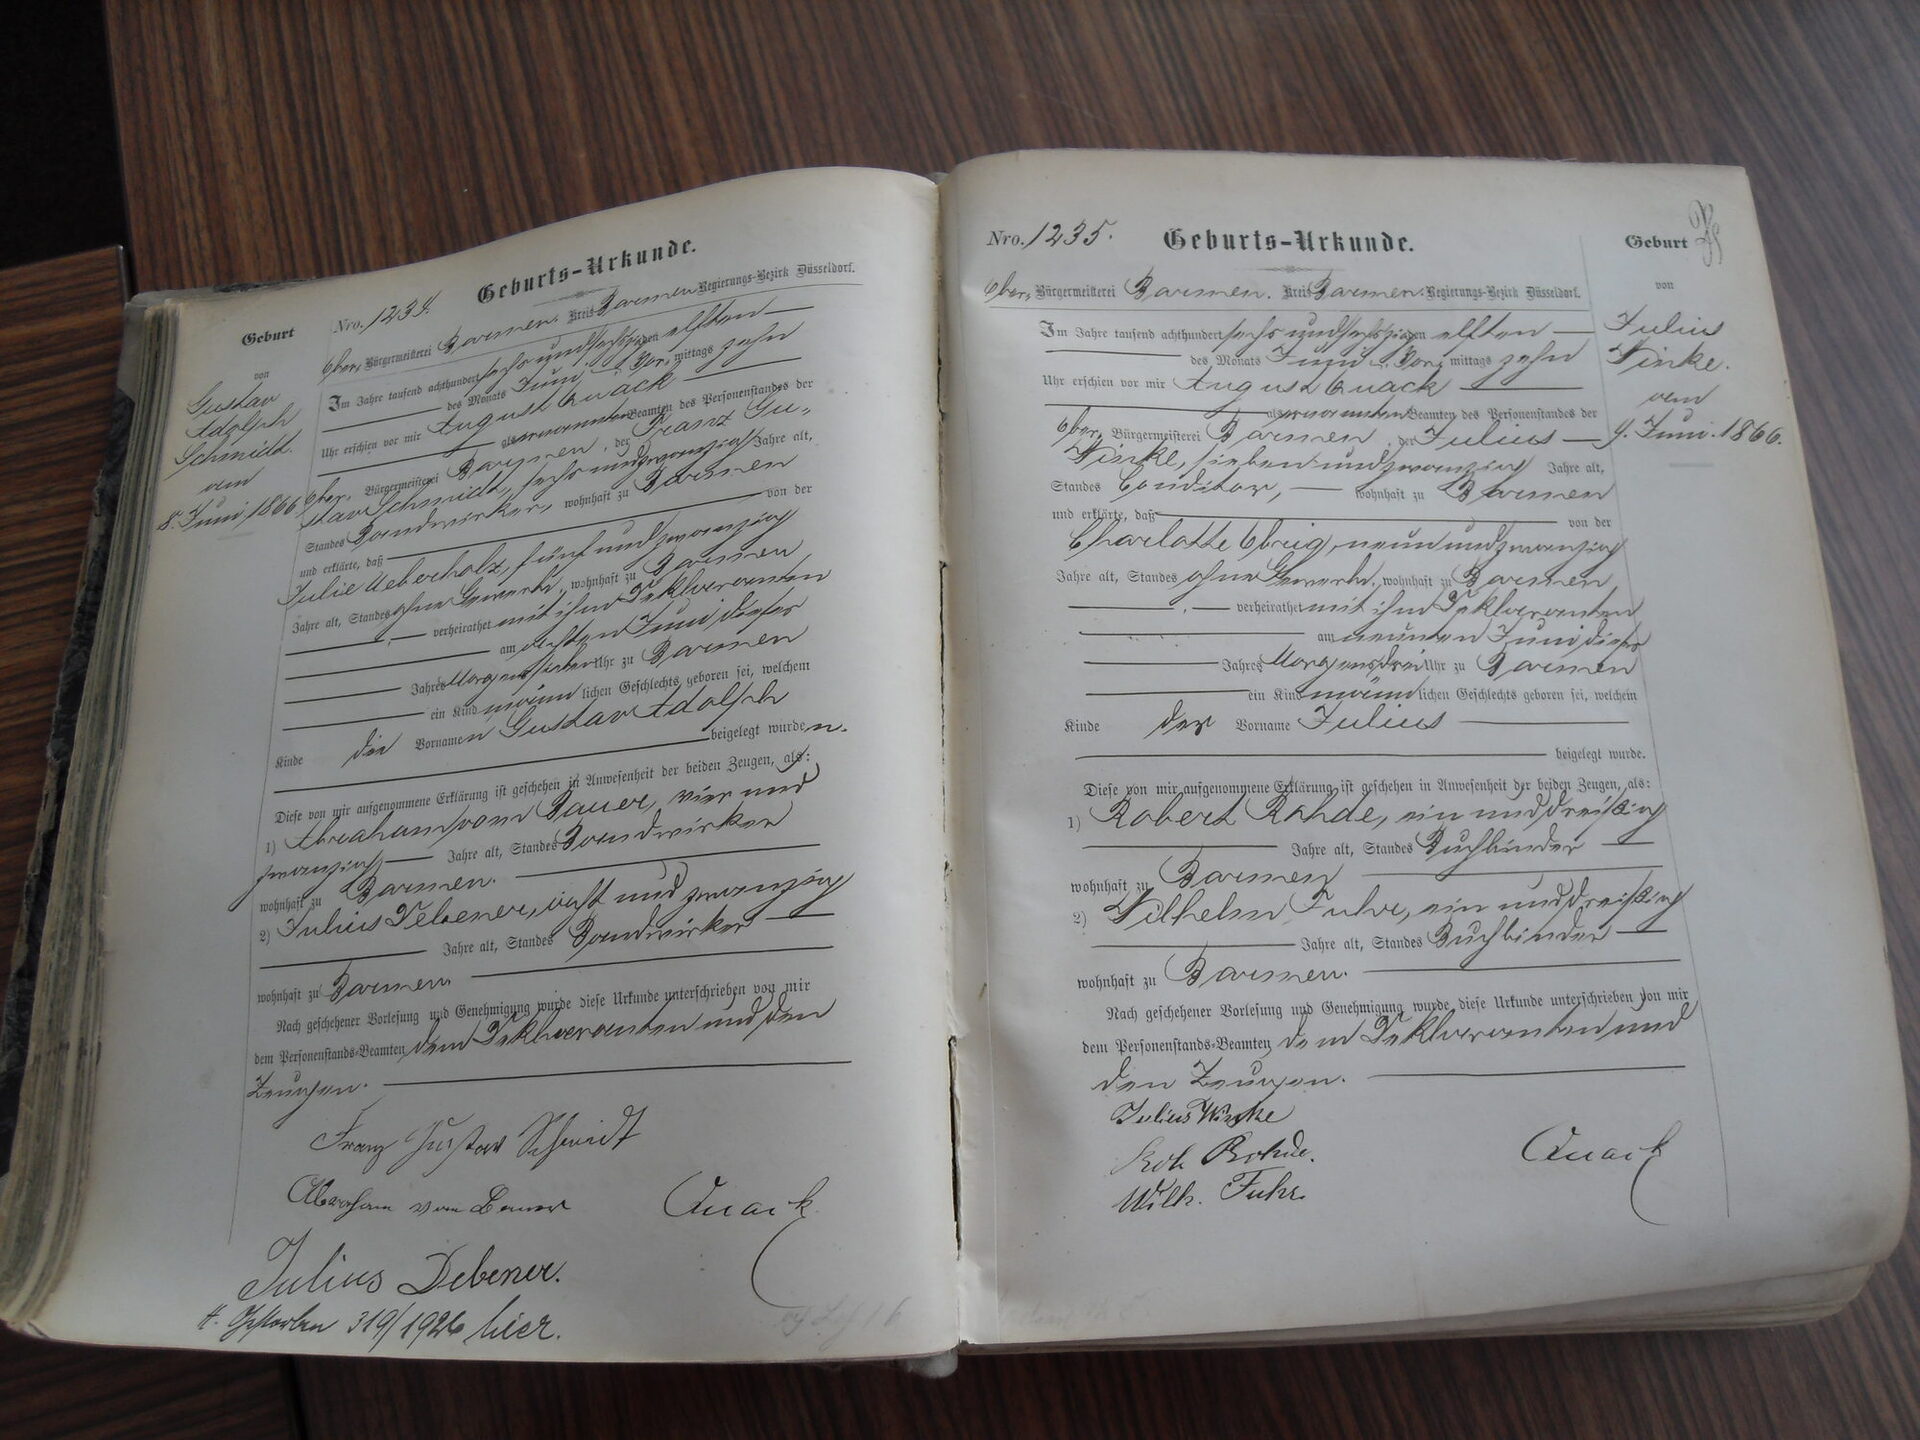 Geburt
von
Gustav
Adolph
Schmidt.
am
8. Juni 1866
Nro. 1234. Geburts-Urkunde.
Ober- Bürgermeisterei Barmen. Kreis Barmen Regierungs-Bezirk Düsseldorf.
Im Jahre tausend achthundert sechs und sechszigen elften
des Monats Juni Vor mittags zehn
Uhr erschien vor mir August Quack
als ernannten Beamten des Personenstandes der
Ober- Bürgermeisterei Barmen, der Franz Gu-
stav Schmidt, sechs und zwanzig Jahre alt,
Standes Bandwirker, wohnhaft zu Barmen
und erklärte, daß von der
Julie Ueberholz, fünf und zwanzig
Jahre alt, Standes ohne Gewerbe, wohnhaft zu Barmen
verheirathet mit ihm Deklaranten
am achten Juni dieses
Jahres Morgens sieben Uhr zu Barmen
ein Kind männlichen Geschlechts geboren sei, welchem
Kinde die Vornamen Gustav Adolph
beigelegt wurden.
Diese von mir aufgenommene Erklärung ist geschehen in Anwesenheit der beiden Zeugen, als:
1) Abraham vom Bauer, vier und
zwanzig Jahre alt, Standes Bandwirker
wohnhaft zu Barmen.
2) Julius Debener, acht und zwanzig
Jahre alt, Standes Bandwirker
wohnhaft zu Barmen.
Nach geschehener Vorlesung und Genehmigung wurde diese Urkunde unterschrieben von mir
dem Personenstands-Beamten, dem Deklaranten und den
Zeugen.
Franz Gustav Schmidt
Abraham vom Bauer Quack
Julius Debener.
Gestorben 319/1926 hier.
Nro. 1235. Geburts-Urkunde.
Ober- Bürgermeisterei Barmen. Kreis Barmen. Regierungs-Bezirk Düsseldorf.
Im Jahre tausend achthundert sechs und sechszigen elften
des Monats Juni Vor mittags zehn
Uhr erschien vor mir August Quack
als ernannten Beamten des Personenstandes der
Ober- Bürgermeisterei Barmen, der Julius
Winke, sieben und zwanzig Jahre alt,
Standes Conditor, wohnhaft zu Barmen
und erklärte, daß von der
Charlotte Obrig, neun und zwanzig
Jahre alt, Standes ohne Gewerbe, wohnhaft zu Barmen
verheirathet mit ihm Deklaranten
am neunten Juni dieses
Jahres Morgens drei Uhr zu Barmen
ein Kind männlichen Geschlechts geboren sei, welchem
Kinde der Vorname Julius
beigelegt wurde.
Diese von mir aufgenommene Erklärung ist geschehen in Anwesenheit der beiden Zeugen, als:
1) Robert Rohde, ein und dreißig
Jahre alt, Standes Buchbinder
wohnhaft zu Barmen
2) Wilhelm Fuhr, ein und dreißig
Jahre alt, Standes Buchbinder
wohnhaft zu Barmen.
Nach geschehener Vorlesung und Genehmigung wurde diese Urkunde unterschrieben von mir
dem Personenstands-Beamten, dem Deklaranten und
den Zeugen.
Julius Winke
Rob Rohde. Quack
Wilh. Fuhr
Geburt
von
Julius
Winke.
am
9. Juni 1866.